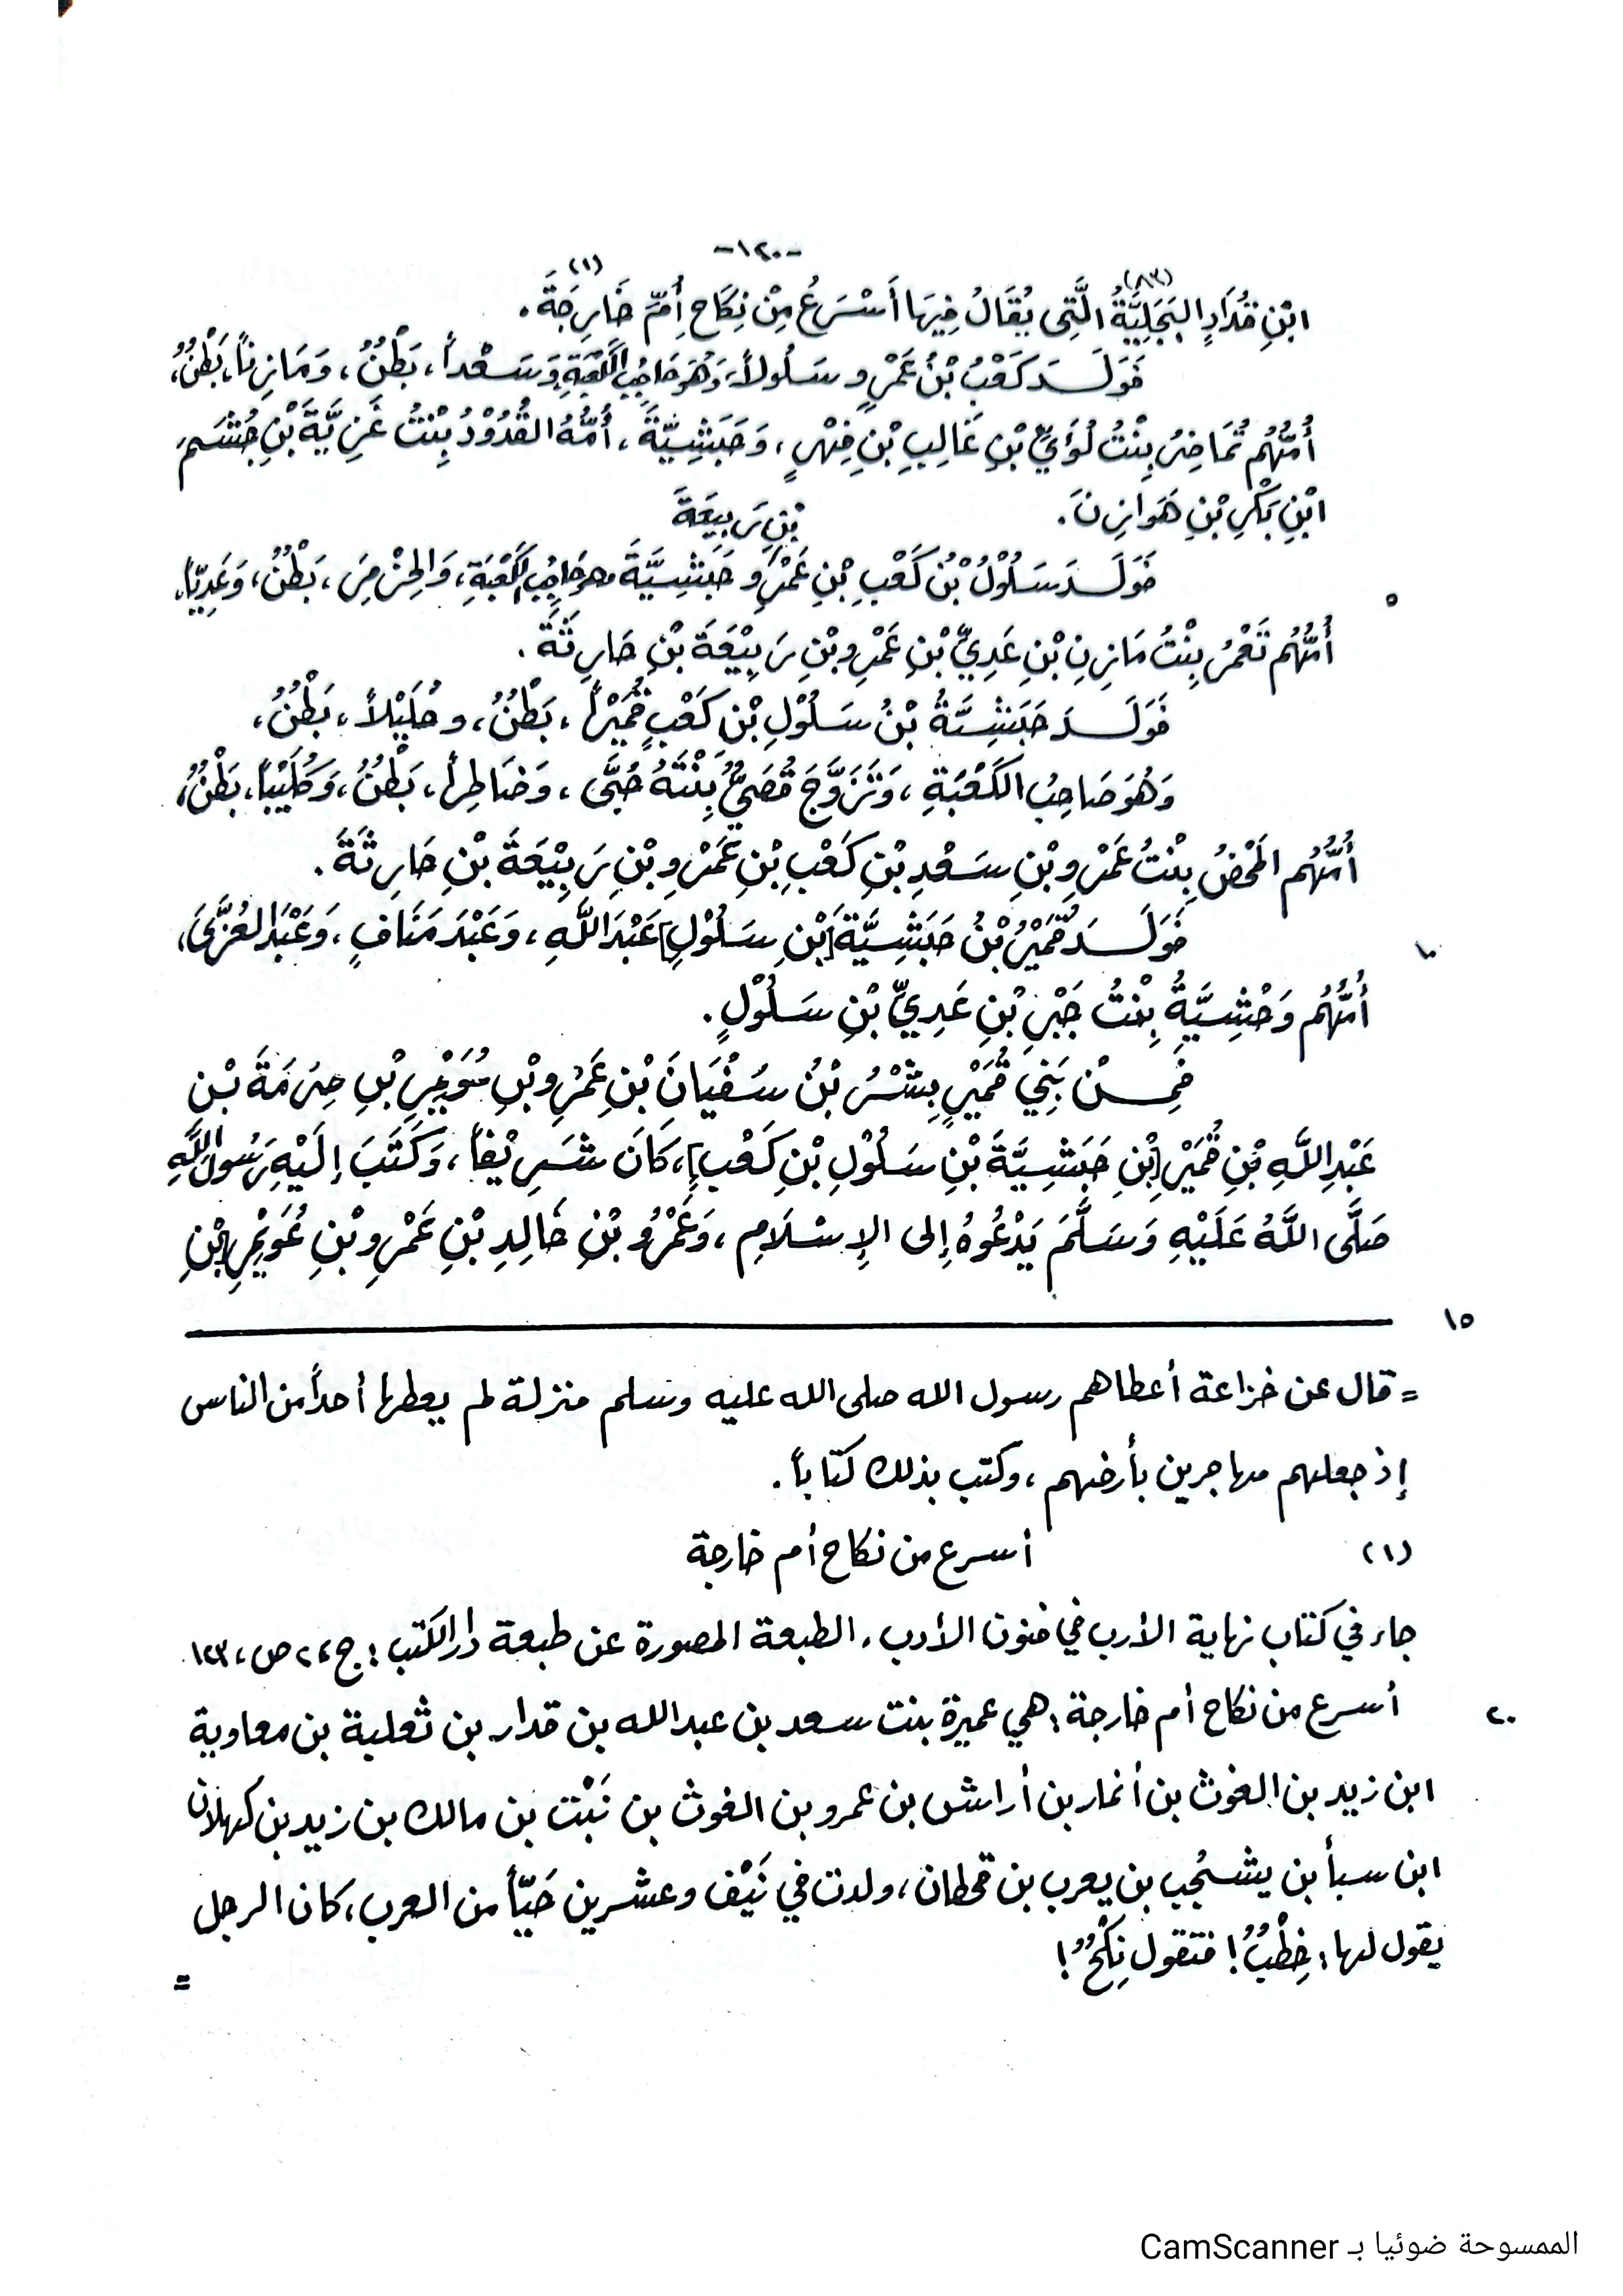 -١٢٠-
ابْنِ قُدَادٍ البَجَلِيَّةُ (٨٣) الَّتِي يُقَالُ فِيَها أَسْرَعُ مِنْ نِكَاحِ أُمِّ خَارِجَةَ (١).
فَوَلَدَ كَعْبُ بْنُ عَمْرٍو سَلُولاً، وَهُوَ حَاجِبُ الكَعْبَةِ وَسَعْداً، بَطْنٌ، وَمَازِناً، بَطْنٌ،
أُمُّهُم تُمَاضِرُ بِنْتُ لُؤَيِّ بْنِ غَالِبِ بْنِ فِهْرٍ، وَحَبَشِيَّةَ، أُمُّهُ القُدُوْدُ بِنْتُ غَزِيَّةَ بْنِ جُشَمَ
ابْنِ بَكْرِ بْنِ هَوَازِنَ.
بْنِ رَبِيعَةَ
فَوَلَدَ سَلُوْلُ بْنُ كَعْبِ بْنِ عَمْرٍو حَبَشِيَّةَ وهو حَاجِبُ الكَعْبَةِ، وَالحِرْمِزَ، بَطْنٌ، وَعَدِيّاً،
٥
أُمُّهُم نُعْمُ بِنْتُ مَازِنِ بْنِ عَدِيِّ بْنِ عَمْرِو بْنِ رَبِيْعَةَ بْنِ حَارِثَةَ.
فَوَلَدَ حَبَشِيَّةُ بْنُ سَلُوْلِ بْنِ كَعْبٍ قُمَيْراً، بَطْنٌ، وحُلَيْلاً، بَطْنٌ،
وَهُوَ صَاحِبُ الكَعْبَةِ، وَتَزَوَّجَ قُصَيٌّ بِنْتَهُ حُبَّى، وَضَاطِراً، بَطْنٌ، وَكُلَيْباً، بَطْنٌ،
أُمُّهُم المَحْضُ بِنْتُ عَمْرِو بْنِ سَعْدِ بْنِ كَعْبِ بْنِ عَمْرِو بْنِ رَبِيْعَةَ بْنِ حَارِثَةَ.
فَوَلَدَ قُمَيْرُ بْنُ حَبَشِيَّةَ [بْنِ سَلُوْلِ] عَبْدَ اللَّهِ، وَعَبْدَ مَنَافٍ، وَعَبْدَ العُزَّى،
١٠
أُمُّهُم وَحْشِيَّةُ بِنْتُ جَبْرِ بْنِ عَدِيِّ بْنِ سَلُوْلٍ.
فَمِنْ بَنِي قُمَيْرٍ بِشْرُ بْنُ سُفْيَانَ بْنِ عَمْرِو بْنِ عُوَيْمِرِ بْنِ صِرْمَةَ بْنِ
عَبْدِ اللَّهِ بْنِ قُمَيْرِ [بْنِ حَبَشِيَّةَ بْنِ سَلُوْلِ بْنِ كَعْبٍ]، كَانَ شَرِيْفاً، وَكَتَبَ إلَيْهِ رَسُولُ اللَّهِ
صَلَّى اللَّهُ عَلَيْهِ وَسَلَّمَ يَدْعُوهُ إلى الإِسْلَامِ، وَعَمْرُو بْنِ خَالِدِ بْنِ عَمْرِو بْنِ عُوَيْمِرِ [بْنِ
١٥
= قال عن خزاعة أعطاهم رسول الله صلى الله عليه وسلم منزلة لم يعطها أحداً من الناس
إذ جعلهم مهاجرين بأرضهم، وكتب بذلك كتاباً.
(١) أسرع من نكاح أم خارجة
جاء في كتاب نهاية الأرب في فنون الأدب، الطبعة المصورة عن طبعة دار الكتب: ج ٢، ص، ١٢٣.
أسرع من نكاح أم خارجة: هي عميرة بنت سعد بن عبدالله بن قدار بن ثعلبة بن معاوية
٢٠
ابن زيد بن الغوث بن أنمار بن أراش بن عمرو بن الغوث بن نَبْت بن مالك بن زيد بن كهلان
ابن سبأ بن يشجُب بن يعرب بن قحطان، ولدت في نَيّف وعشرين حَيّاً من العرب، كان الرجل
يقول لها: خِطْبٌ! فتقول نِكْحٌ!
=
الممسوحة ضوئيا بـ CamScanner